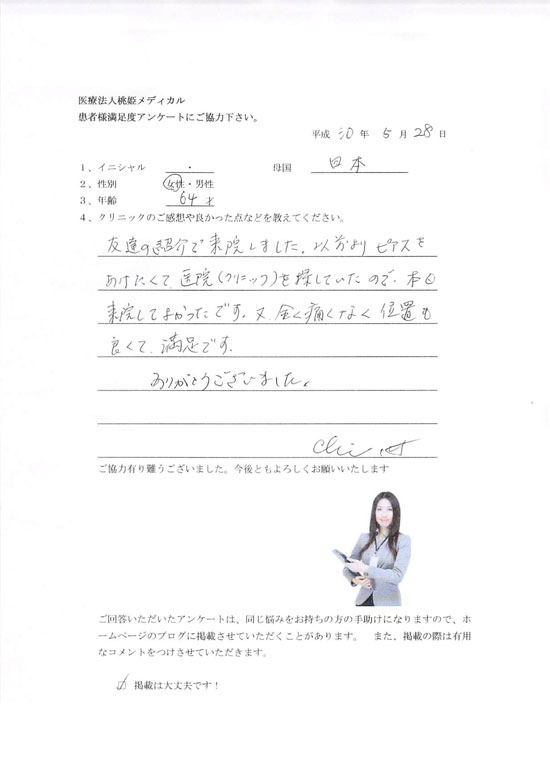 医療法人桃姫メディカル
患者様満足度アンケートにご協力下さい。
平成 30 年 5 月 28 日
1、イニシャル ・ 母国 日本
2、性別 女性・男性
3、年齢 64 才
4、クリニックのご感想や良かった点などを教えてください。
友達の紹介で来院しました。以前より ピアスを
あけたくて 医院(クリニック)を探していたので、本日
来院してよかったです。又、全く痛くなく 位置も
良くて、満足です。
ありがとうございました。
ご協力有り難うございました。今後ともよろしくお願いいたします
ご回答いただいたアンケートは、同じ悩みをお持ちの方の手助けになりますので、ホ
ームページのブログに掲載させていただくことがあります。 また、掲載の際は有用
なコメントをつけさせていただきます。
☑ 掲載は大丈夫です！